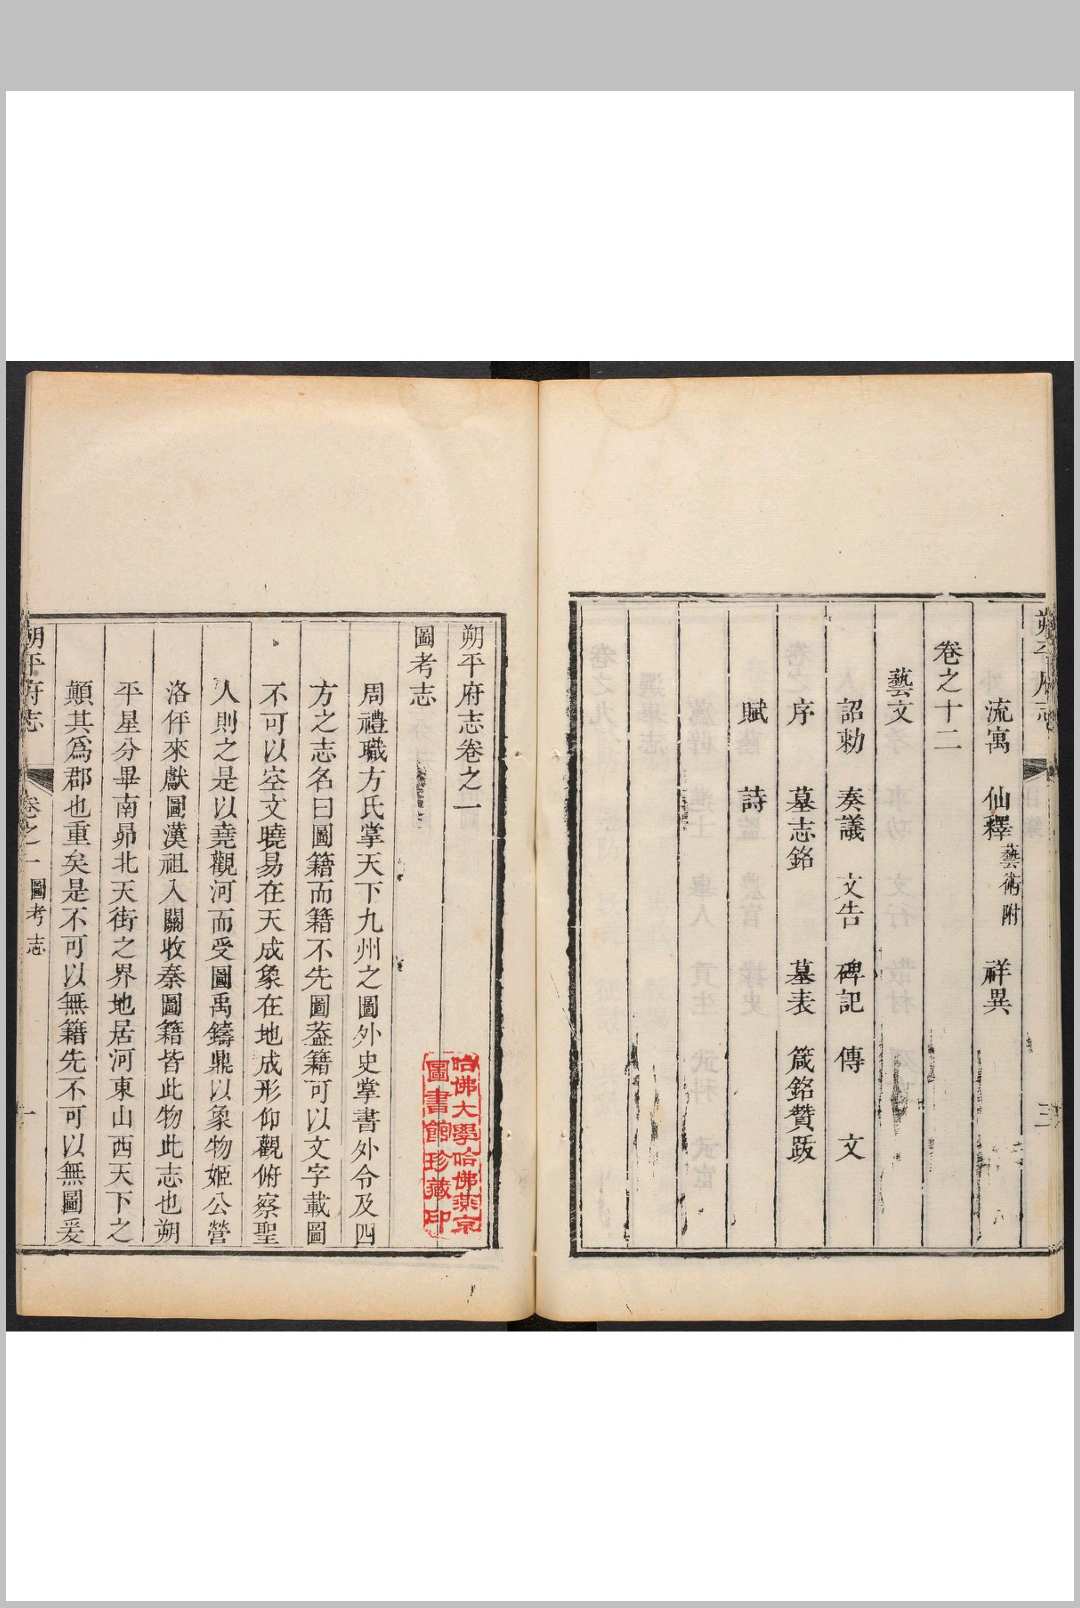 朔平府志
三
流寓　仙釋藝術附　祥異
卷之十二
藝文
詔勅　奏議　文告　碑記　傳　文
序　墓志銘　墓表　箴銘贊跋
賦　詩
朔平府志卷之一
圖考志
周禮職方氏掌天下九州之圖外史掌書外令及四
方之志名曰圖籍而籍不先圖葢籍可以文字載圖
不可以空文曉易在天成象在地成形仰觀俯察聖
人則之是以堯觀河而受圖禹鑄鼎以象物姬公營
洛伻來獻圖漢祖入關收秦圖籍皆此物此志也朔
平星分畢南昴北天街之界地居河東山西天下之
顛其爲郡也重矣是不可以無籍先不可以無圖爰
朔平府志
卷之一　圖考志
一
哈佛大學哈佛燕京
圖書館珍藏印